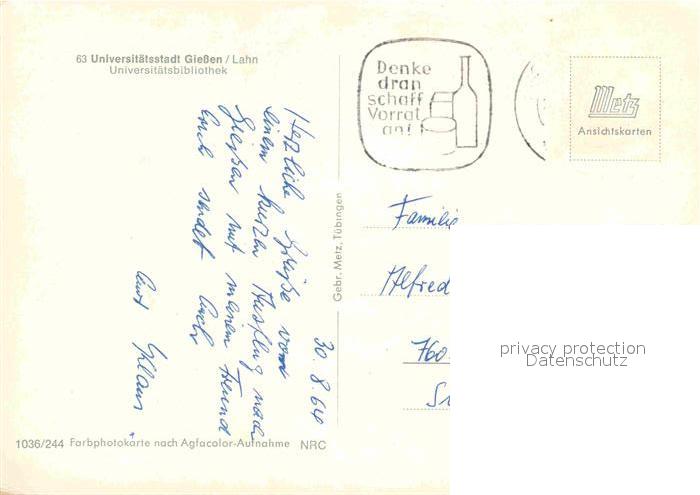 63 Universitätsstadt Gießen / Lahn
Universitätsbibliothek
Denke
dran
schaff
Vorrat
an!
Metz
Ansichtskarten
30.8.64
Herzliche Grüße von
einem kurzen Ausflug nach
Gießen mit meinem Freund
Euch sendet auch
Klaus
Gebr. Metz, Tübingen
Familie
Alfred
760
privacy protection
Datenschutz
1036/244 Farbphotokarte nach Agfacolor-Aufnahme NRC